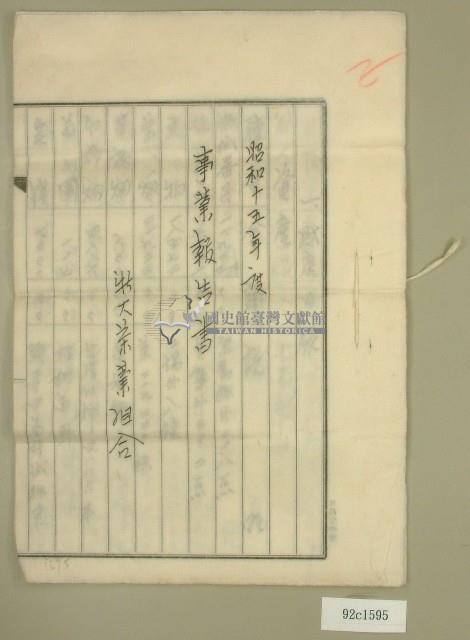 昭和十五年度
事業報告書
大薬業組合
國史館臺灣文獻館
TAIWAN HISTORICA
1595
92c1595